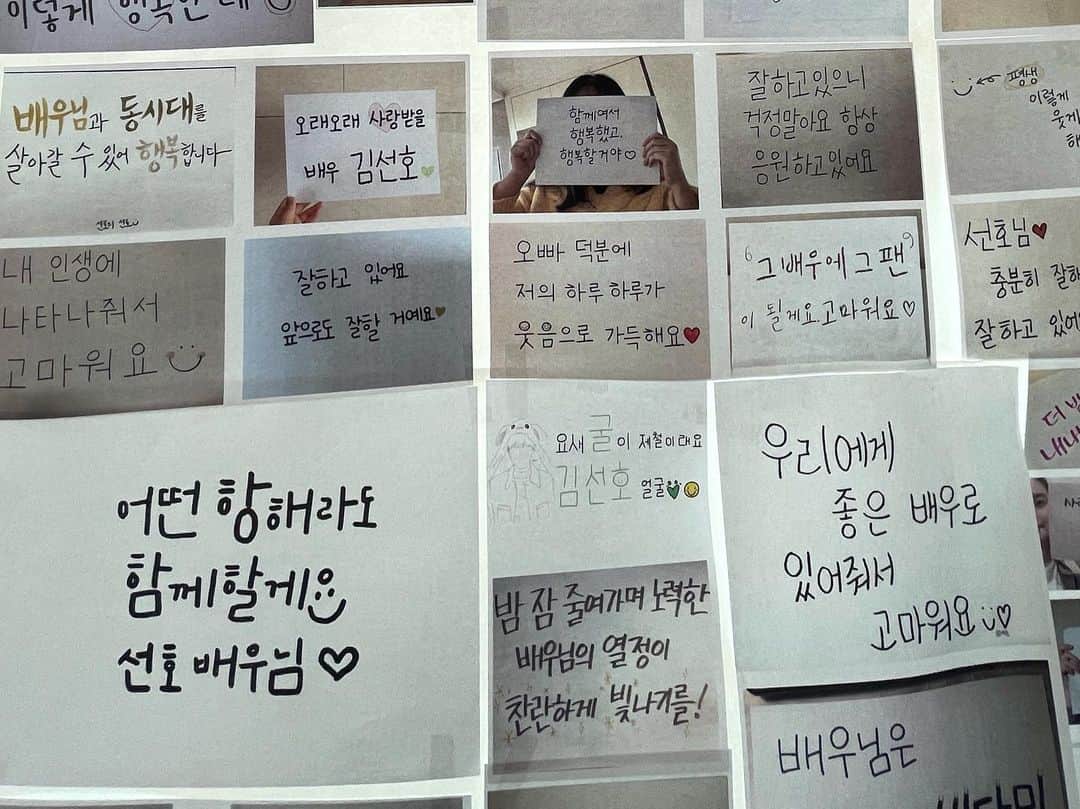 이렇게 행복한 데
배우님과 동시대를
살아갈 수 있어 행복합니다
오래오래 사랑받을
배우 김선호
함께여서
행복했고,
행복할거야♡
잘하고있으니
걱정말아요 항상
응원하고있어요
평생
이렇게
웃게
해
내 인생에
나타나줘서
고마워요
잘하고 있어요
앞으로도 잘할 거예요
오빠 덕분에
저의 하루 하루가
웃음으로 가득해요
그 배우에 그 팬
이 될게요 고마워요♡
선호님
충분히 잘하
잘하고 있어
어떤 항해라도
함께할게요
선호 배우님♡
요새 굴이 제철이래요
김선호 얼굴
밤 잠 줄여가며 노력한
배우님의 열정이
찬란하게 빛나기를!
우리에게
좋은 배우로
있어줘서
고마워요♡
더
내
배우님은